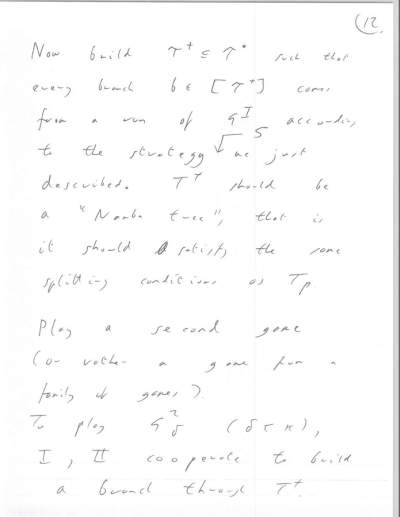 12
Now build T^+ ⊆ T^* such that
every branch b ∈ [T^+] comes
from a run of G^I according
to the strategy S we just
described. T^+ should be
a "Namba tree", that is
it should satisfy the same
splitting conditions as T_p
Play a second game
(or rather a game from a
family of games).
To play G^2_δ (δ < κ),
I, II cooperate to build
a branch through T^+.